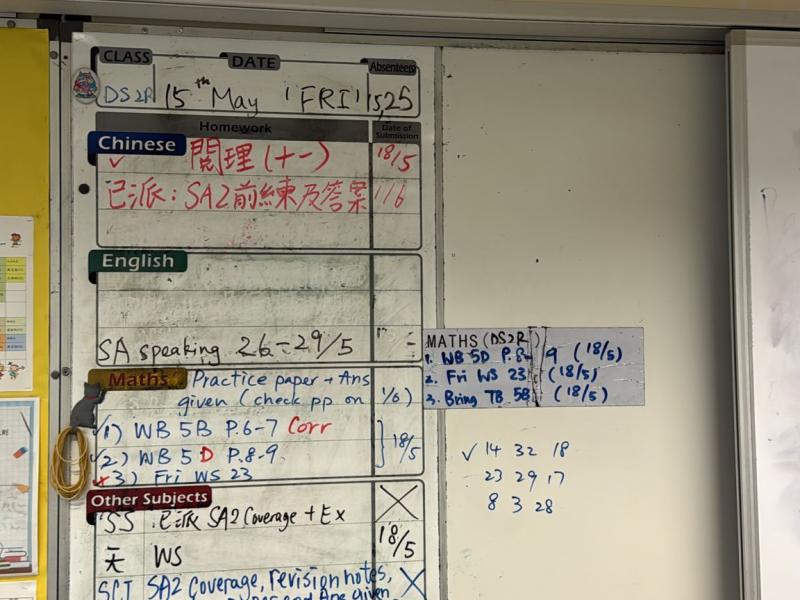 CLASS DATE Absentees
DS2R 15th May (FRI) 15,25
Homework Date of Submission
Chinese
✓ 閱理(十一) 18/5
已派:SA2前練及答案 1/6
English
SA speaking 26-29/5
Maths Practice paper + Ans
given (check pp on 1/6)
✓1) WB 5B P.6-7 Corr
✓2) WB 5D P.8-9 18/5
3) Fri WS 23
Other Subjects
SS 已派 SA2 Coverage + Ex
WS 18/5
SCI SA2 Coverage, revision notes,
and Ans given
MATHS (DS2R)
1. WB 5D P.8-9 (18/5)
2. Fri WS 23 (18/5)
3. Bring TB 5B (18/5)
✓ 14 32 18
23 29 17
8 3 28